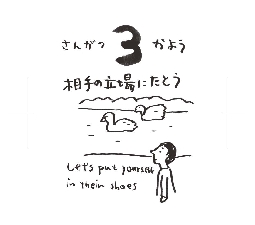 さんがつ 3 かよう
相手の立場にたとう
Let's put yourself
in their shoes